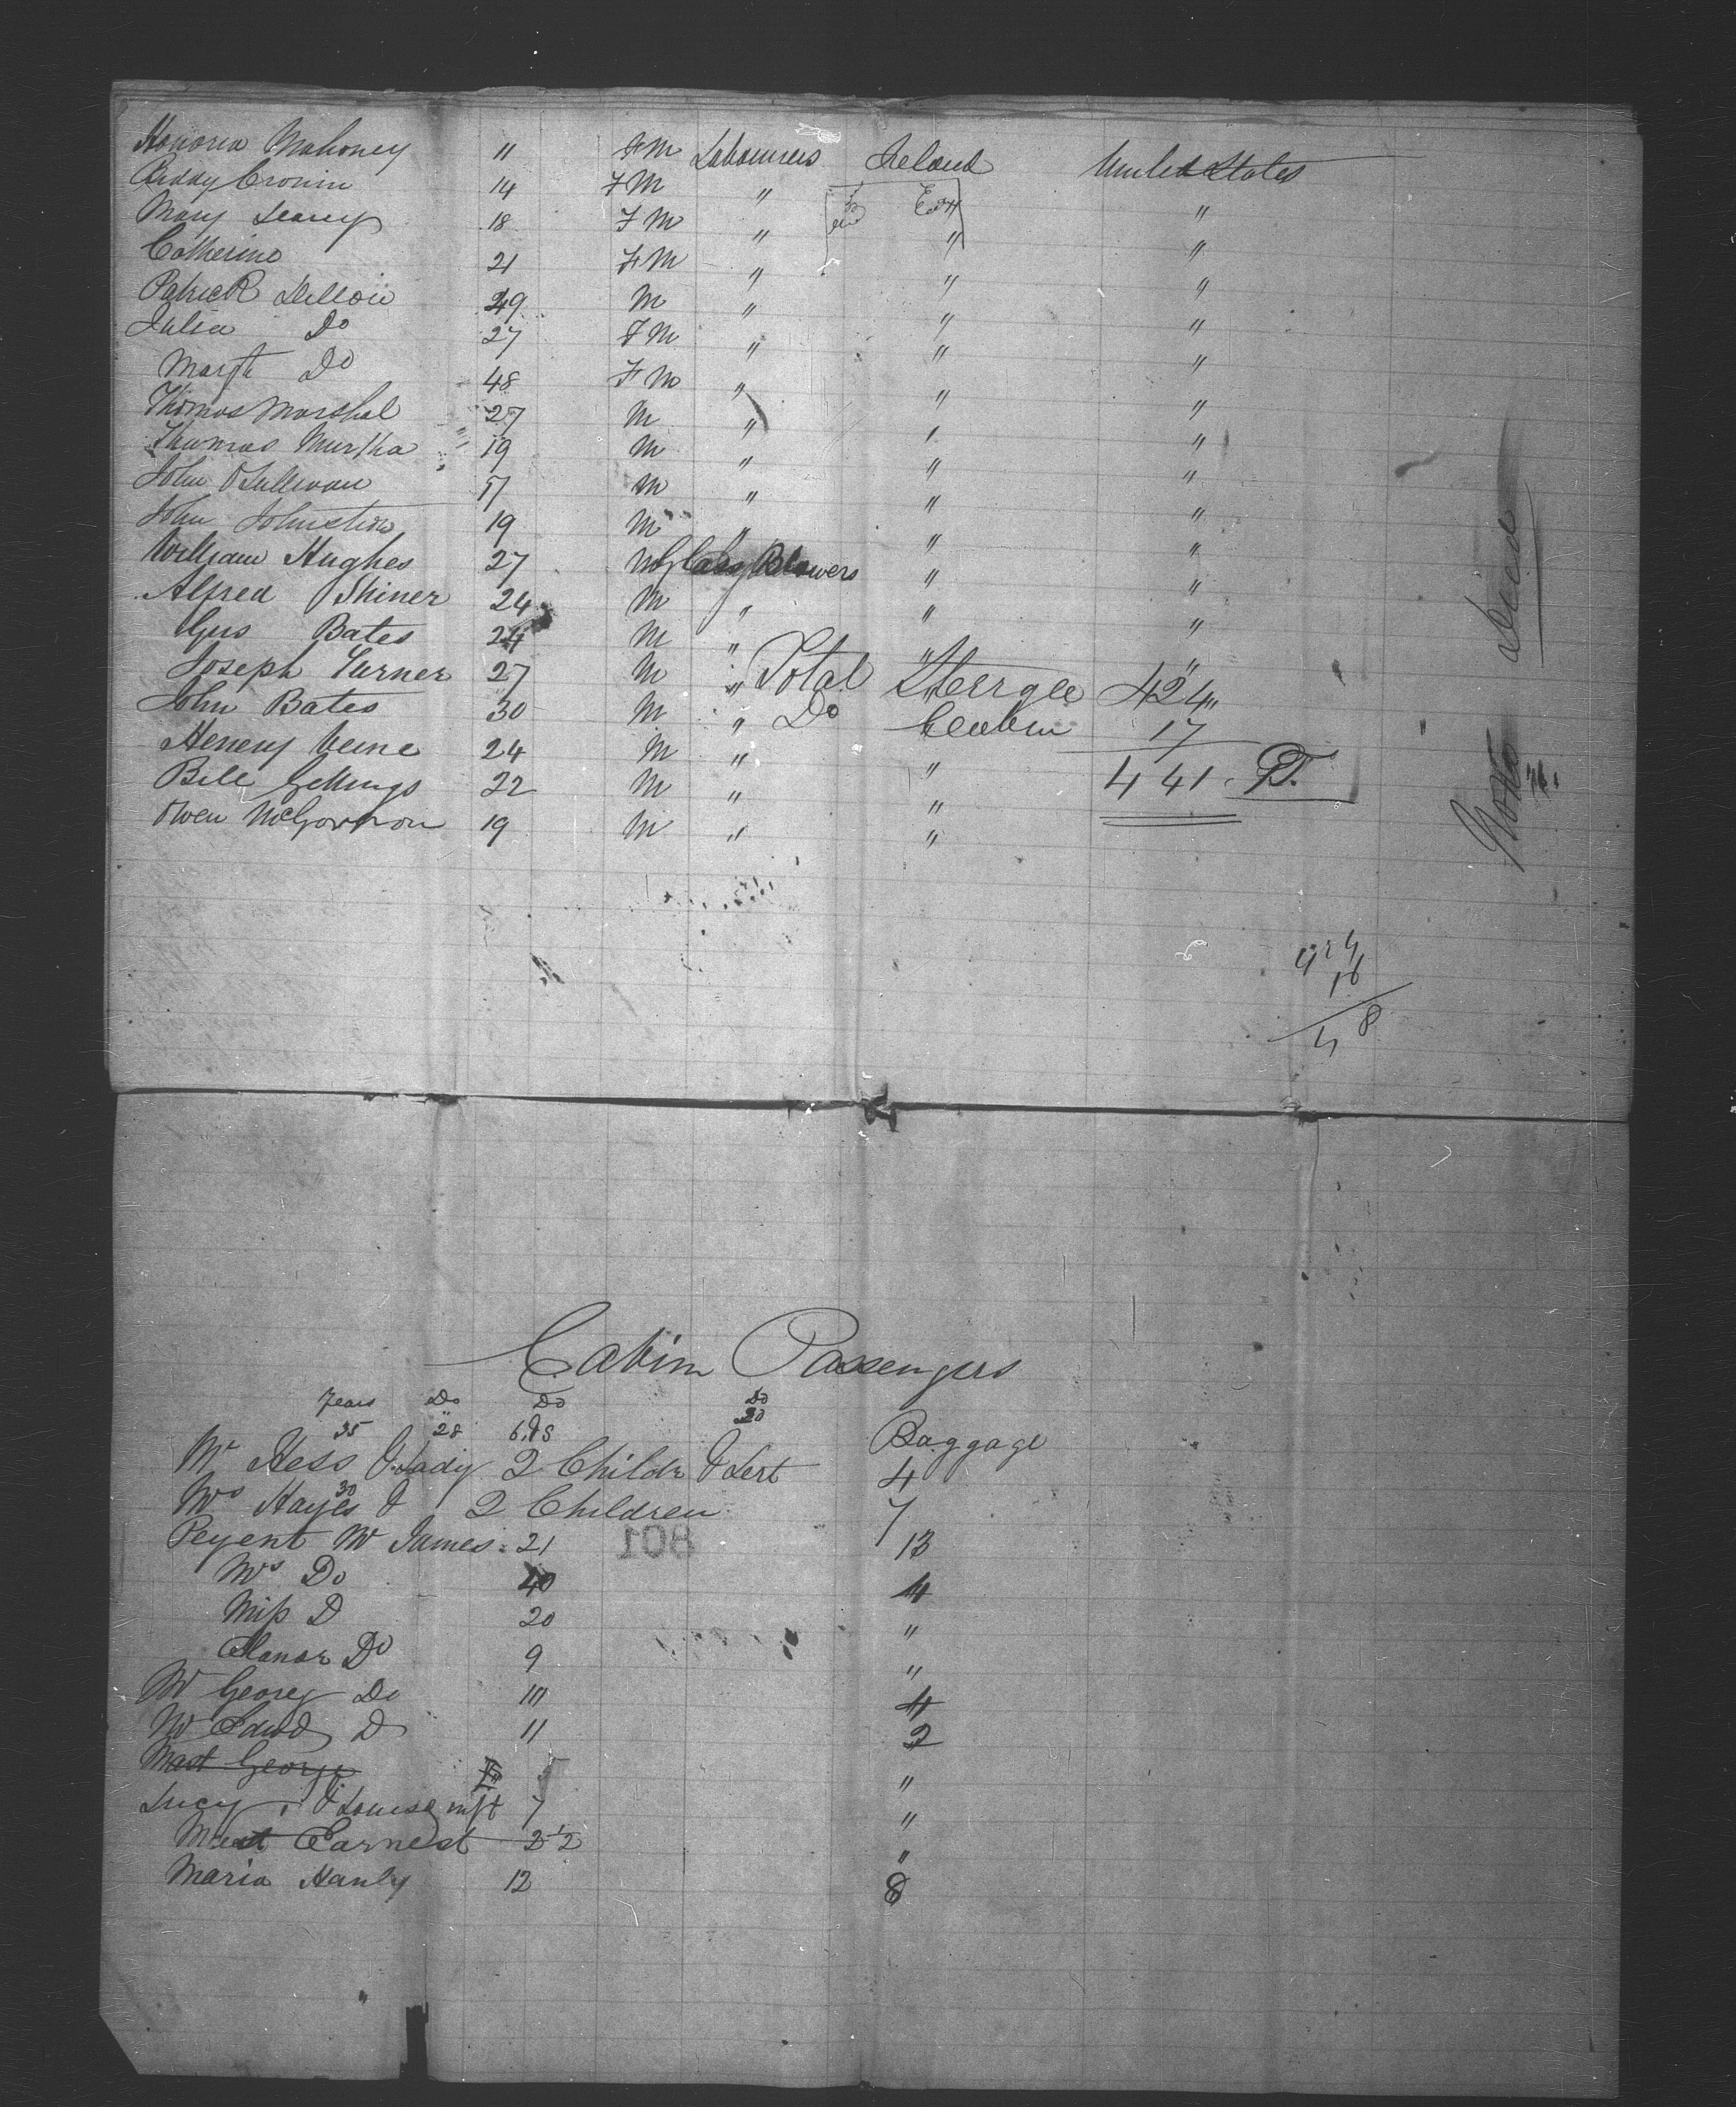 Honoria Mahoney 11 F M Labourers Ireland United States
Biddy Cronin 14 F M " "
Mary Leary 18 F M " " "
Catherine 21 F M " " "
Patrick Dillon 29 M " " "
Julia Do 27 F M " " "
Margt Do 48 F M " " "
Thomas Marshal 27 M " " "
Thomas Murtha 19 M " " "
John O Sullivan 17 M " " "
John Johnston 19 M " " "
William Hughes 27 M Glass Blowers " "
Alfred Shiner 24 M " " "
Gus Bates 24 M " " "
Joseph Turner 27 M " Total Sterrge 424
John Bates 30 M " Do Cabin 17
Henery 24 M " " 441
Bill Gettings 22 M " "
Owen McGovron 19 M " "
424
Cabin Passengers
Years Do Do Do
35 28 6, &8 20 Baggage
Mr Hess & Lady 2 Childr & Sert 4
Mrs Hayes 30 & 2 Children 7
Peyent Mr James 21 13
801
Mrs Do 40 4
Miss D 20 "
Elanor Do 9 "
Mr Georg Do 4
Mr Edwd D 11 2
Mast George "
Lucy & Louise inft 7 "
Mast Earnest 2 1/2 "
Maria Hanly 12 8